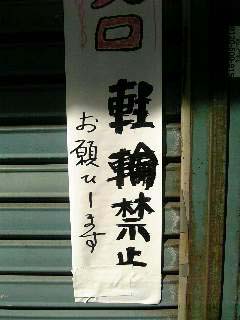 口
軽輪禁止
お願ひします